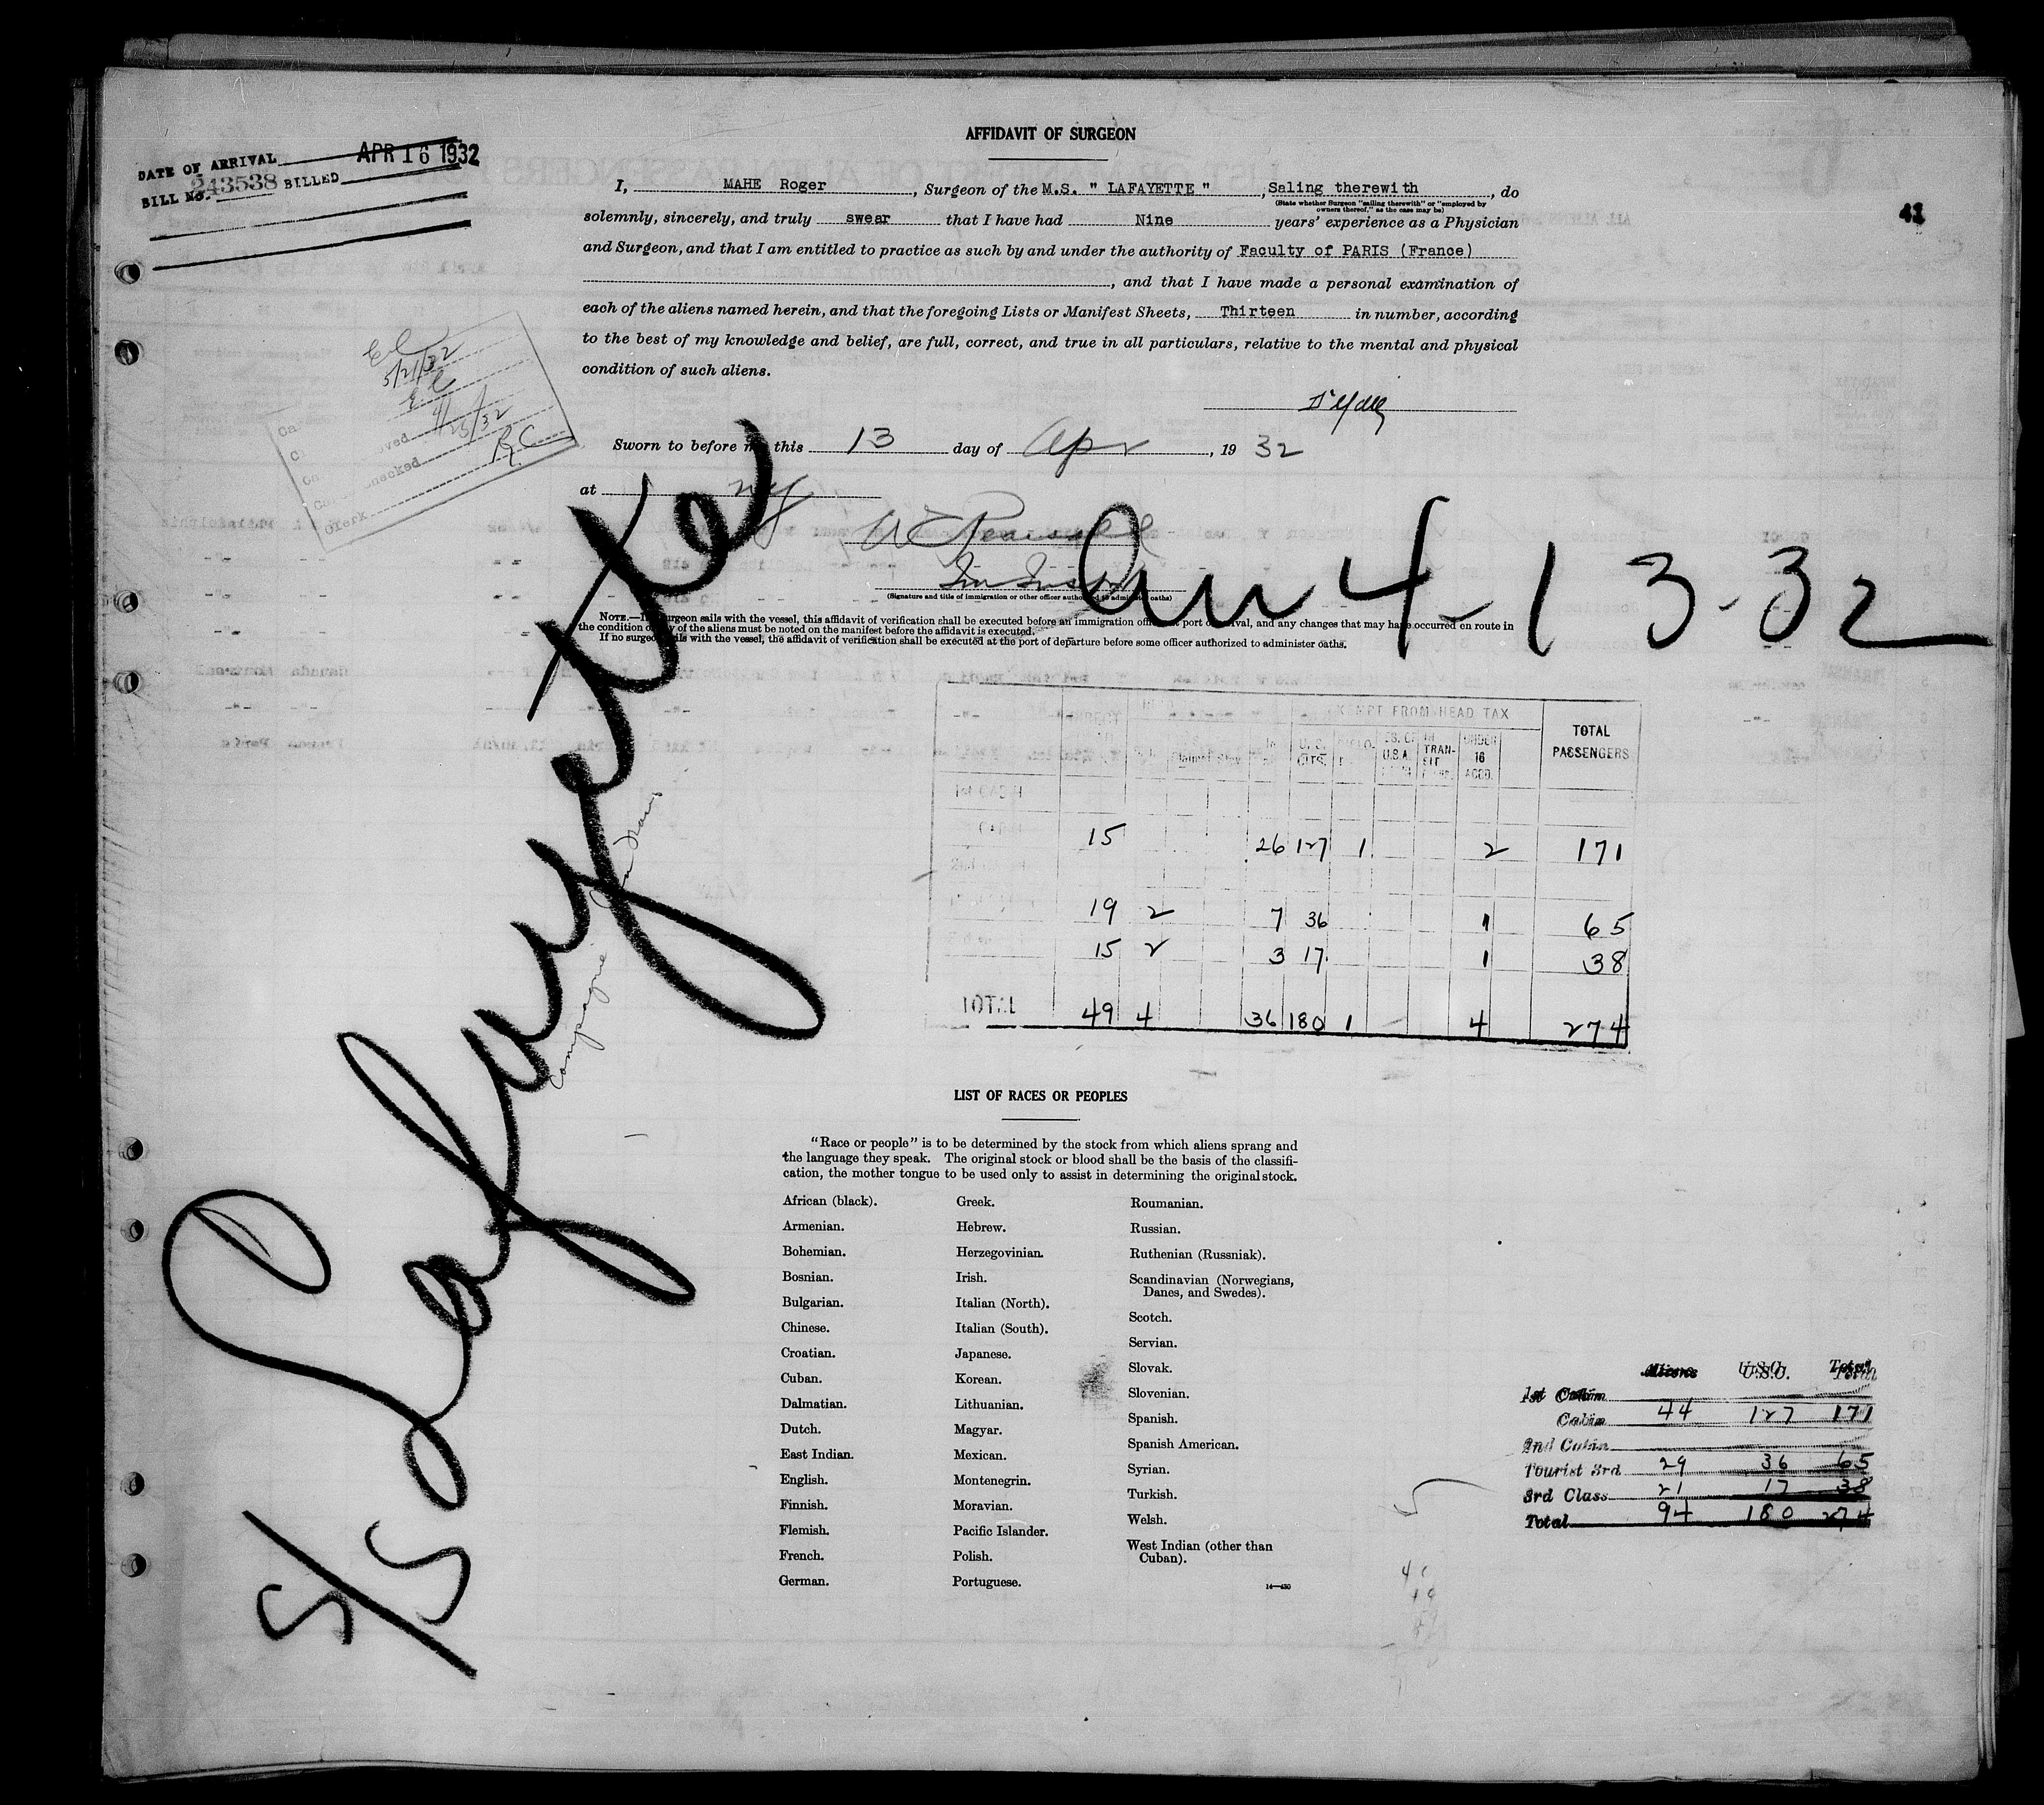 AFFIDAVIT OF SURGEON
DATE OF ARRIVAL APR 16 1932
BILL No. 243538 BILLED
41
I, MAHE Roger, Surgeon of the M.S. " LAFAYETTE ", Saling therewith, do
(State whether Surgeon "sailing therewith" or "employed by
owners thereof," as the case may be)
solemnly, sincerely, and truly swear that I have had Nine years' experience as a Physician
and Surgeon, and that I am entitled to practice as such by and under the authority of Faculty of PARIS (France)
, and that I have made a personal examination of
each of the aliens named herein, and that the foregoing Lists or Manifest Sheets, Thirteen in number, according
to the best of my knowledge and belief, are full, correct, and true in all particulars, relative to the mental and physical
condition of such aliens.
5/21/32
4/25/32
Clerk
Sworn to before me this 13 day of Apr, 19 32
at NY
(Signature and title of immigration or other officer authorized to administer oaths)
4-13-32
NOTE.—If surgeon sails with the vessel, this affidavit of verification shall be executed before an immigration officer at port of arrival, and any changes that may have occurred en route in
the condition of any of the aliens must be noted on the manifest before the affidavit is executed.
If no surgeon sails with the vessel, the affidavit of verification shall be executed at the port of departure before some officer authorized to administer oaths.
S/S Lafayette
Compagnie
EXEMPT FROM HEAD TAX
TOTAL PASSENGERS
U.S. CITS.
U.S.A.
IN TRANSIT
UNDER 16 ACCD.
15 26 127 1 2 171
19 2 7 36 1 65
15 2 3 17 1 38
TOTAL 49 4 36 180 1 4 274
LIST OF RACES OR PEOPLES
"Race or people" is to be determined by the stock from which aliens sprang and
the language they speak. The original stock or blood shall be the basis of the classifi-
cation, the mother tongue to be used only to assist in determining the original stock.
African (black).
Armenian.
Bohemian.
Bosnian.
Bulgarian.
Chinese.
Croatian.
Cuban.
Dalmatian.
Dutch.
East Indian.
English.
Finnish.
Flemish.
French.
German.
Greek.
Hebrew.
Herzegovinian.
Irish.
Italian (North).
Italian (South).
Japanese.
Korean.
Lithuanian.
Magyar.
Mexican.
Montenegrin.
Moravian.
Pacific Islander.
Polish.
Portuguese.
Roumanian.
Russian.
Ruthenian (Russniak).
Scandinavian (Norwegians,
Danes, and Swedes).
Scotch.
Servian.
Slovak.
Slovenian.
Spanish.
Spanish American.
Syrian.
Turkish.
Welsh.
West Indian (other than
Cuban).
14—430
Aliens U.S.C. Total
1st Cabin
Cabin 44 127 171
2nd Cabin
Tourist 3rd 29 36 65
3rd Class 21 17 38
Total 94 180 274